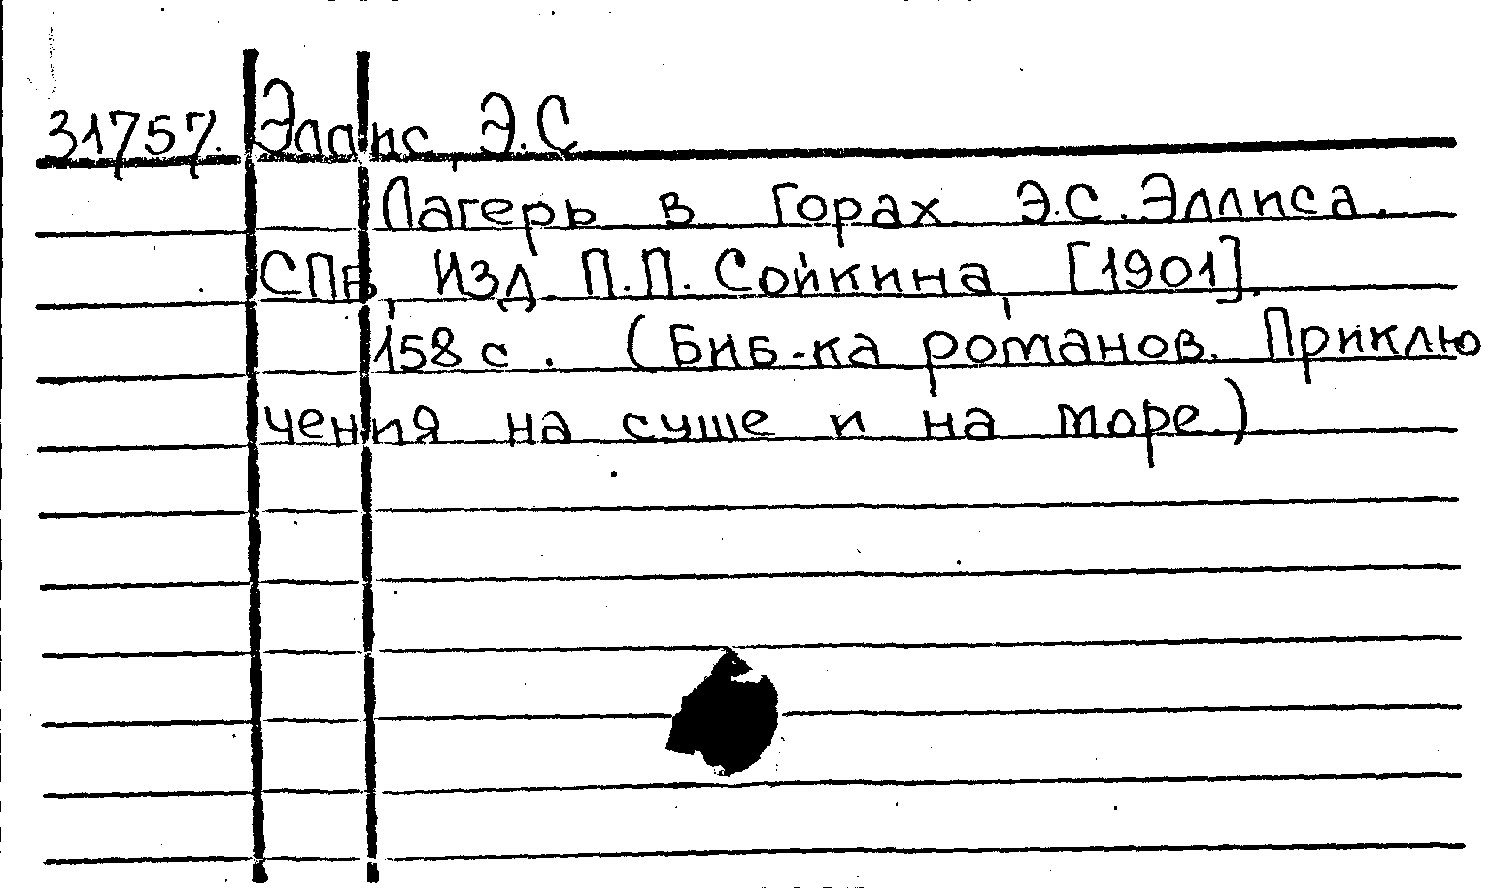 31757. Эллис, Э.С
Лагерь в горах Э.С. Эллиса.
СПб, Изд. П.П. Сойкина, [1901].
158 с. (Биб-ка романов. Приклю
чения на суше и на море.)